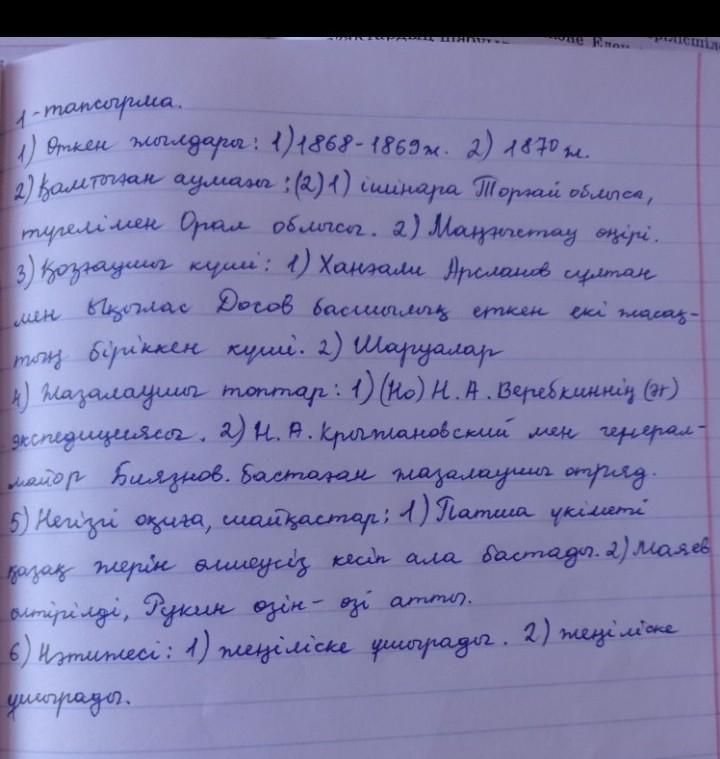 1-тапсырма.
1) Өткен жылдары: 1) 1868-1869ж. 2) 1870ж.
2) Қамтыған аумағы: (2) 1) ішінара Торғай облысы,
түгелімен Орал облысы. 2) Маңғыстау өңірі.
3) Қозғаушы күші: 1) Ханғали Арсланов сұлтан
мен Ықылас Досов басшылық еткен екі жасақ-
тың біріккен күші. 2) Шаруалар
4) Жазалаушы топтар: 1) (Но) Н.А. Веревкиннің (әт)
экспедициясы. 2) Н.А. Крыжановский мен генерал-
майор Биязнов. бастаған жазалаушы отряд.
5) Негізгі оқиға, шайқастар: 1) Патша үкіметі
қазақ жерін өлшеусіз кесіп ала бастады. 2) Маяев
өлтірілді, Рукин өзін-өзі атты.
6) Нәтижесі: 1) жеңіліске ұшырады. 2) жеңіліске
ұшырады.